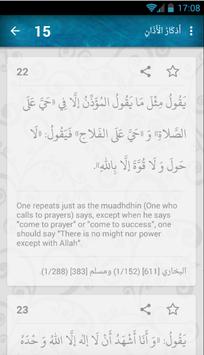 17:08
15
أَذْكَارُ الْأَذَانِ
22
يَقُولُ مِثْلَ مَا يَقُولُ الْمُؤَذِّنُ إِلَّا فِي «حَيَّ عَلَى
الصَّلَاةِ» وَ«حَيَّ عَلَى الْفَلَاحِ» فَيَقُولُ: «لَا
حَوْلَ وَلَا قُوَّةَ إِلَّا بِاللَّهِ».
One repeats just as the muadhdhin (One who
calls to prayers) says, except when he says
"come to prayer" or "come to success", one
should say "There is no might nor power
except with Allah".
البخاري [611] (1/152) ومسلم [383] (1/288)
23
يَقُولُ: «وَأَنَا أَشْهَدُ أَنْ لَا إِلَهَ إِلَّا اللَّهُ وَحْدَهُ